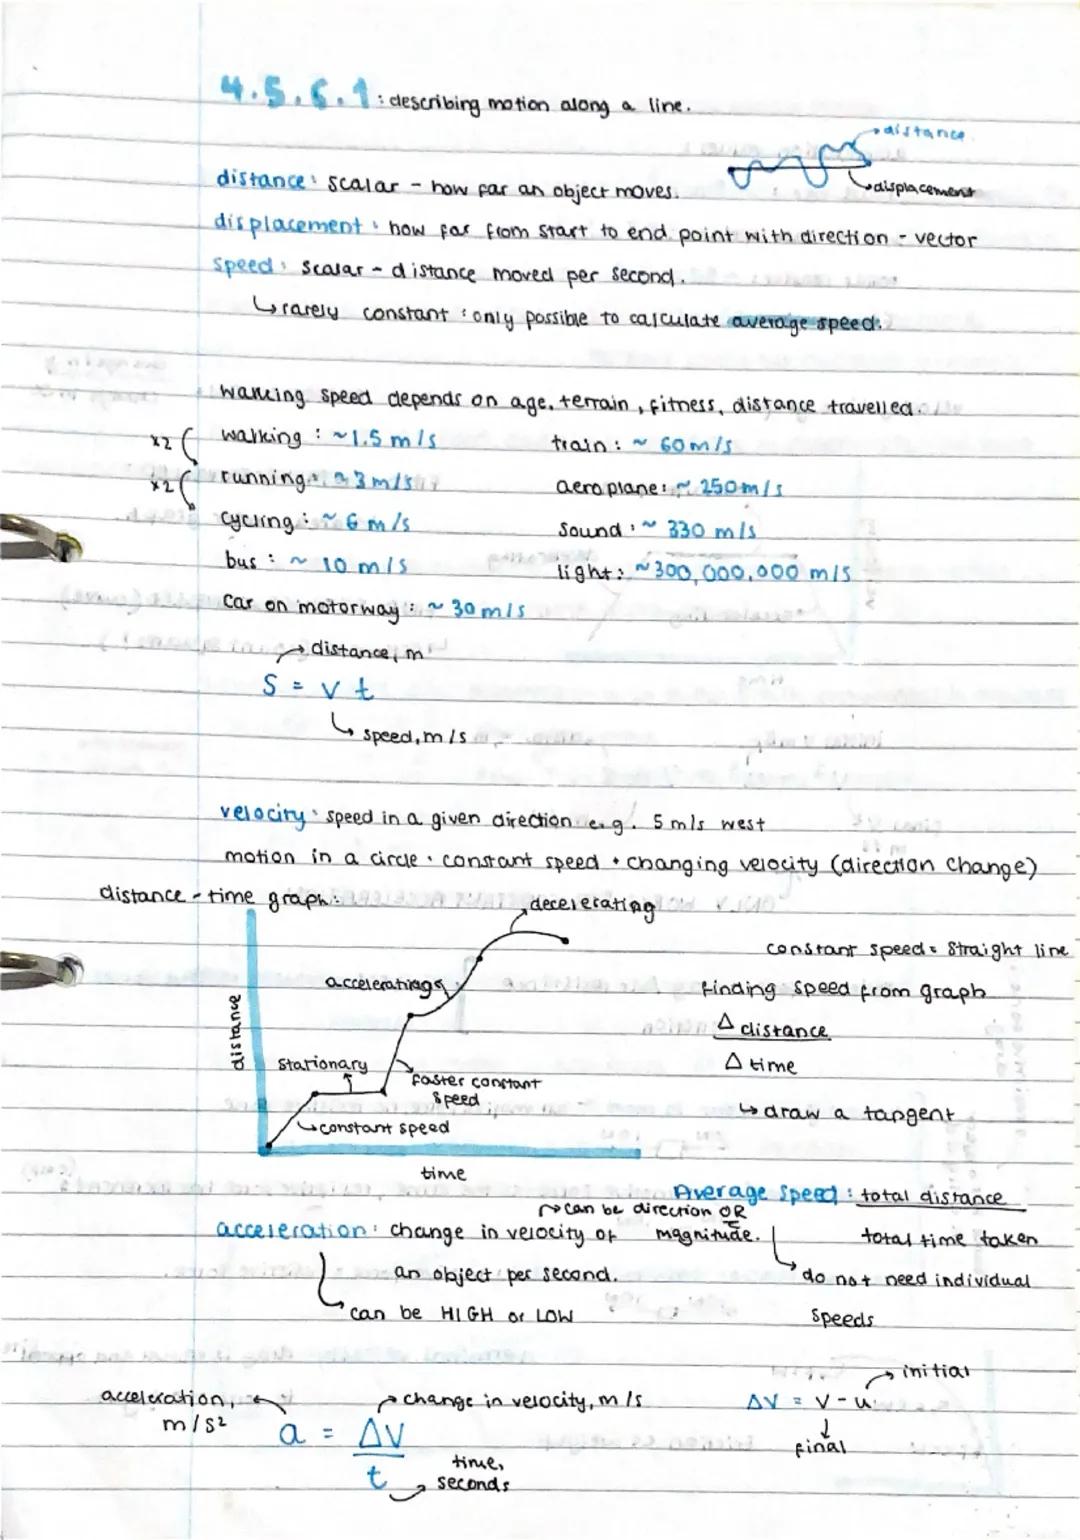 4.5.6.1 : describing motion along a line.
distance
distance : scalar - how far an object moves.
displacement
displacement : how far from start to end point with direction - vector
speed : scalar - distance moved per second.
↳ rarely constant : only possible to calculate average speed.
walking speed depends on age, terrain, fitness, distance travelled.
x2
walking : ~1.5 m/s
train : ~ 60 m/s
x2
running : ~ 3 m/s
aeroplane : ~ 250 m/s
cycling : ~ 6 m/s
sound : ~ 330 m/s
bus : ~ 10 m/s
light : ~300,000,000 m/s
car on motorway : ~ 30 m/s
distance, m
S = v t
speed, m/s
velocity : speed in a given direction e.g. 5 m/s west
motion in a circle : constant speed + changing velocity (direction change)
distance - time graph :
decelerating
constant speed = straight line
accelerating
finding speed from graph
distance
Δ distance
Δ time
stationary
faster constant
speed
↳ draw a tangent
constant speed
time
Average speed : total distance
total time taken
do not need individual
speeds
can be direction OR
acceleration : change in velocity of magnitude.
an object per second.
can be HIGH or LOW
acceleration,
m/s²
change in velocity, m/s
a = ΔV
t
time,
seconds
initial
ΔV = v - u
final